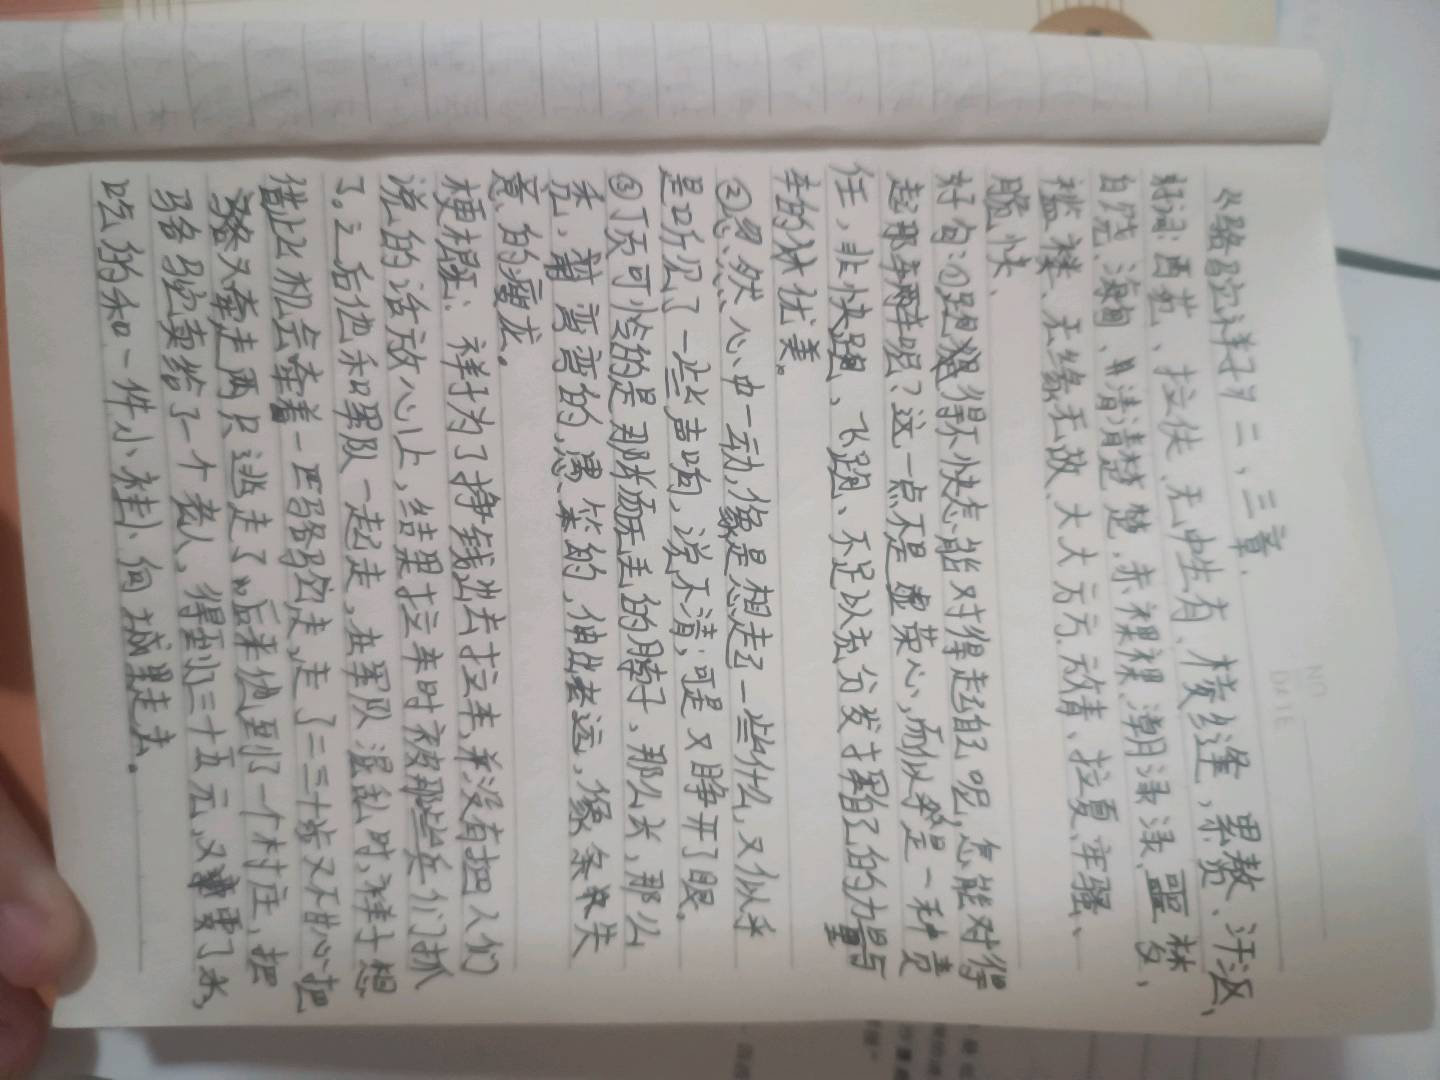 《骆驼祥子》二,三章.
好词:西苑、拉伕、无中生有、接缝,累赘、汗沤、
自然、海甸、清清楚楚,赤裸裸、潮渌渌、噩梦、
褴褛、无缘无故、大大方方、敞情、拉夏、牢骚、
脆快、
好句:①跑得不快怎能对得起自己呢,怎能对得
起那辆车呢?这一点不是虚荣心,而似乎是一种责
任,非快跑、飞跑、不足以充分发挥自己的力量与
车的优美。
②忽然心中一动,像是想起了一些什么,又似乎
是听见了一些声响,说不清;可是又睁开了眼。
③顶可怜的是那长而无毛的脖子,那么长,那么
秃,弯弯的,愚笨的,伸出老远,像条失
意的瘦龙。
梗概:祥子为了挣钱出去拉车,并没有把人们
说的话放心上,结果拉车时被那些兵们抓
了。之后他和军队一起走,在军队混乱时,祥子想
借此机会牵着一匹骆驼走,走了二三十步又不甘心把
又牵走两只逃走了。后来他到了一个村庄,把
骆驼卖给了一个老人,得到三十五元,又要了水,
吃的和一件小褂,向城里走去.
NO
DATE